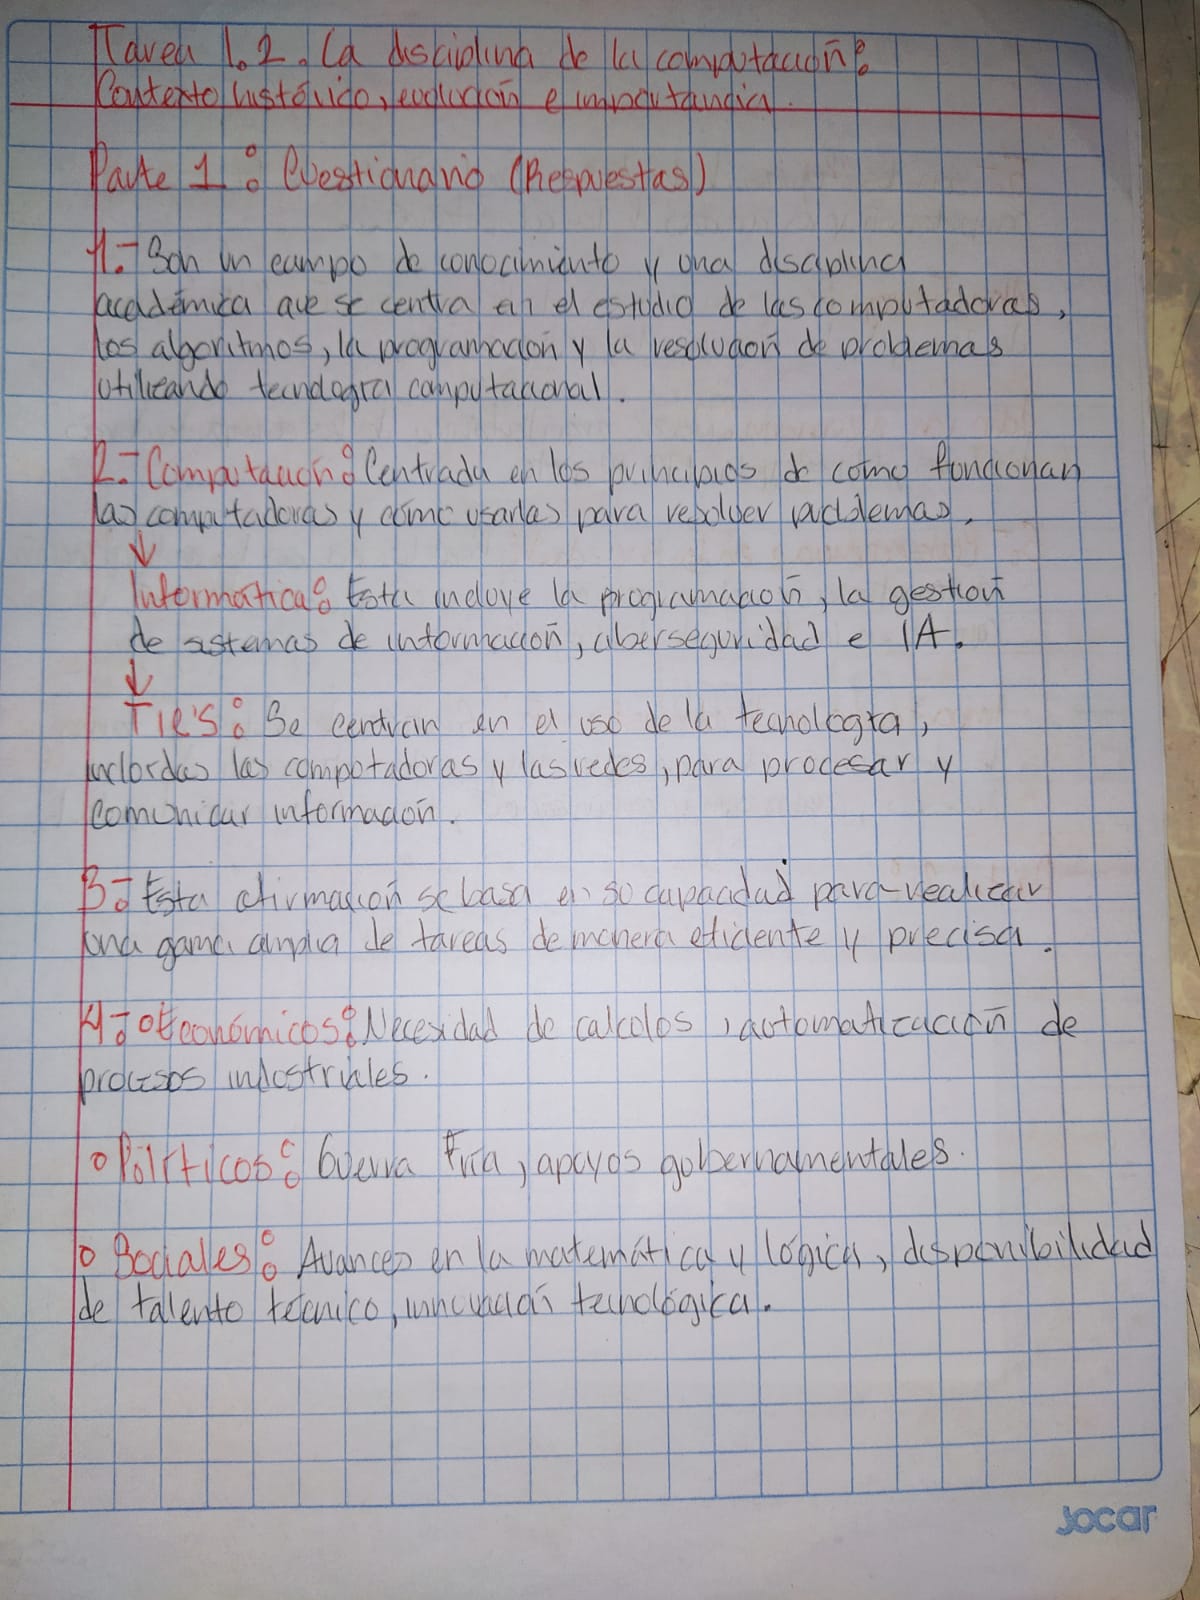 Tarea 1.2. La disciplina de la computación:
Contexto histórico, evolución e importancia.
Parte 1: Cuestionario (Respuestas)
1.- Son un campo de conocimiento y una disciplina
académica que se centra en el estudio de las computadoras,
los algoritmos, la programación y la resolución de problemas
utilizando tecnología computacional.
2.- Computación: Centrada en los principios de como funcionan
las computadoras y cómo usarlas para resolver problemas.
↓
Informática: Esta incluye la programación, la gestión
de sistemas de información, ciberseguridad e IA.
↓
TIC's: Se centran en el uso de la tecnología,
incluidas las computadoras y las redes, para procesar y
comunicar información.
3.- Esta afirmación se basa en su capacidad para realizar
una gama amplia de tareas de manera eficiente y precisa.
4.- o Económicos: Necesidad de calculos, automatización de
procesos industriales.
o Políticos: Guerra Fría, apoyos gobernamentales.
o Sociales: Avances en la matemática y lógica, disponibilidad
de talento técnico, innovación tecnológica.
Jocar